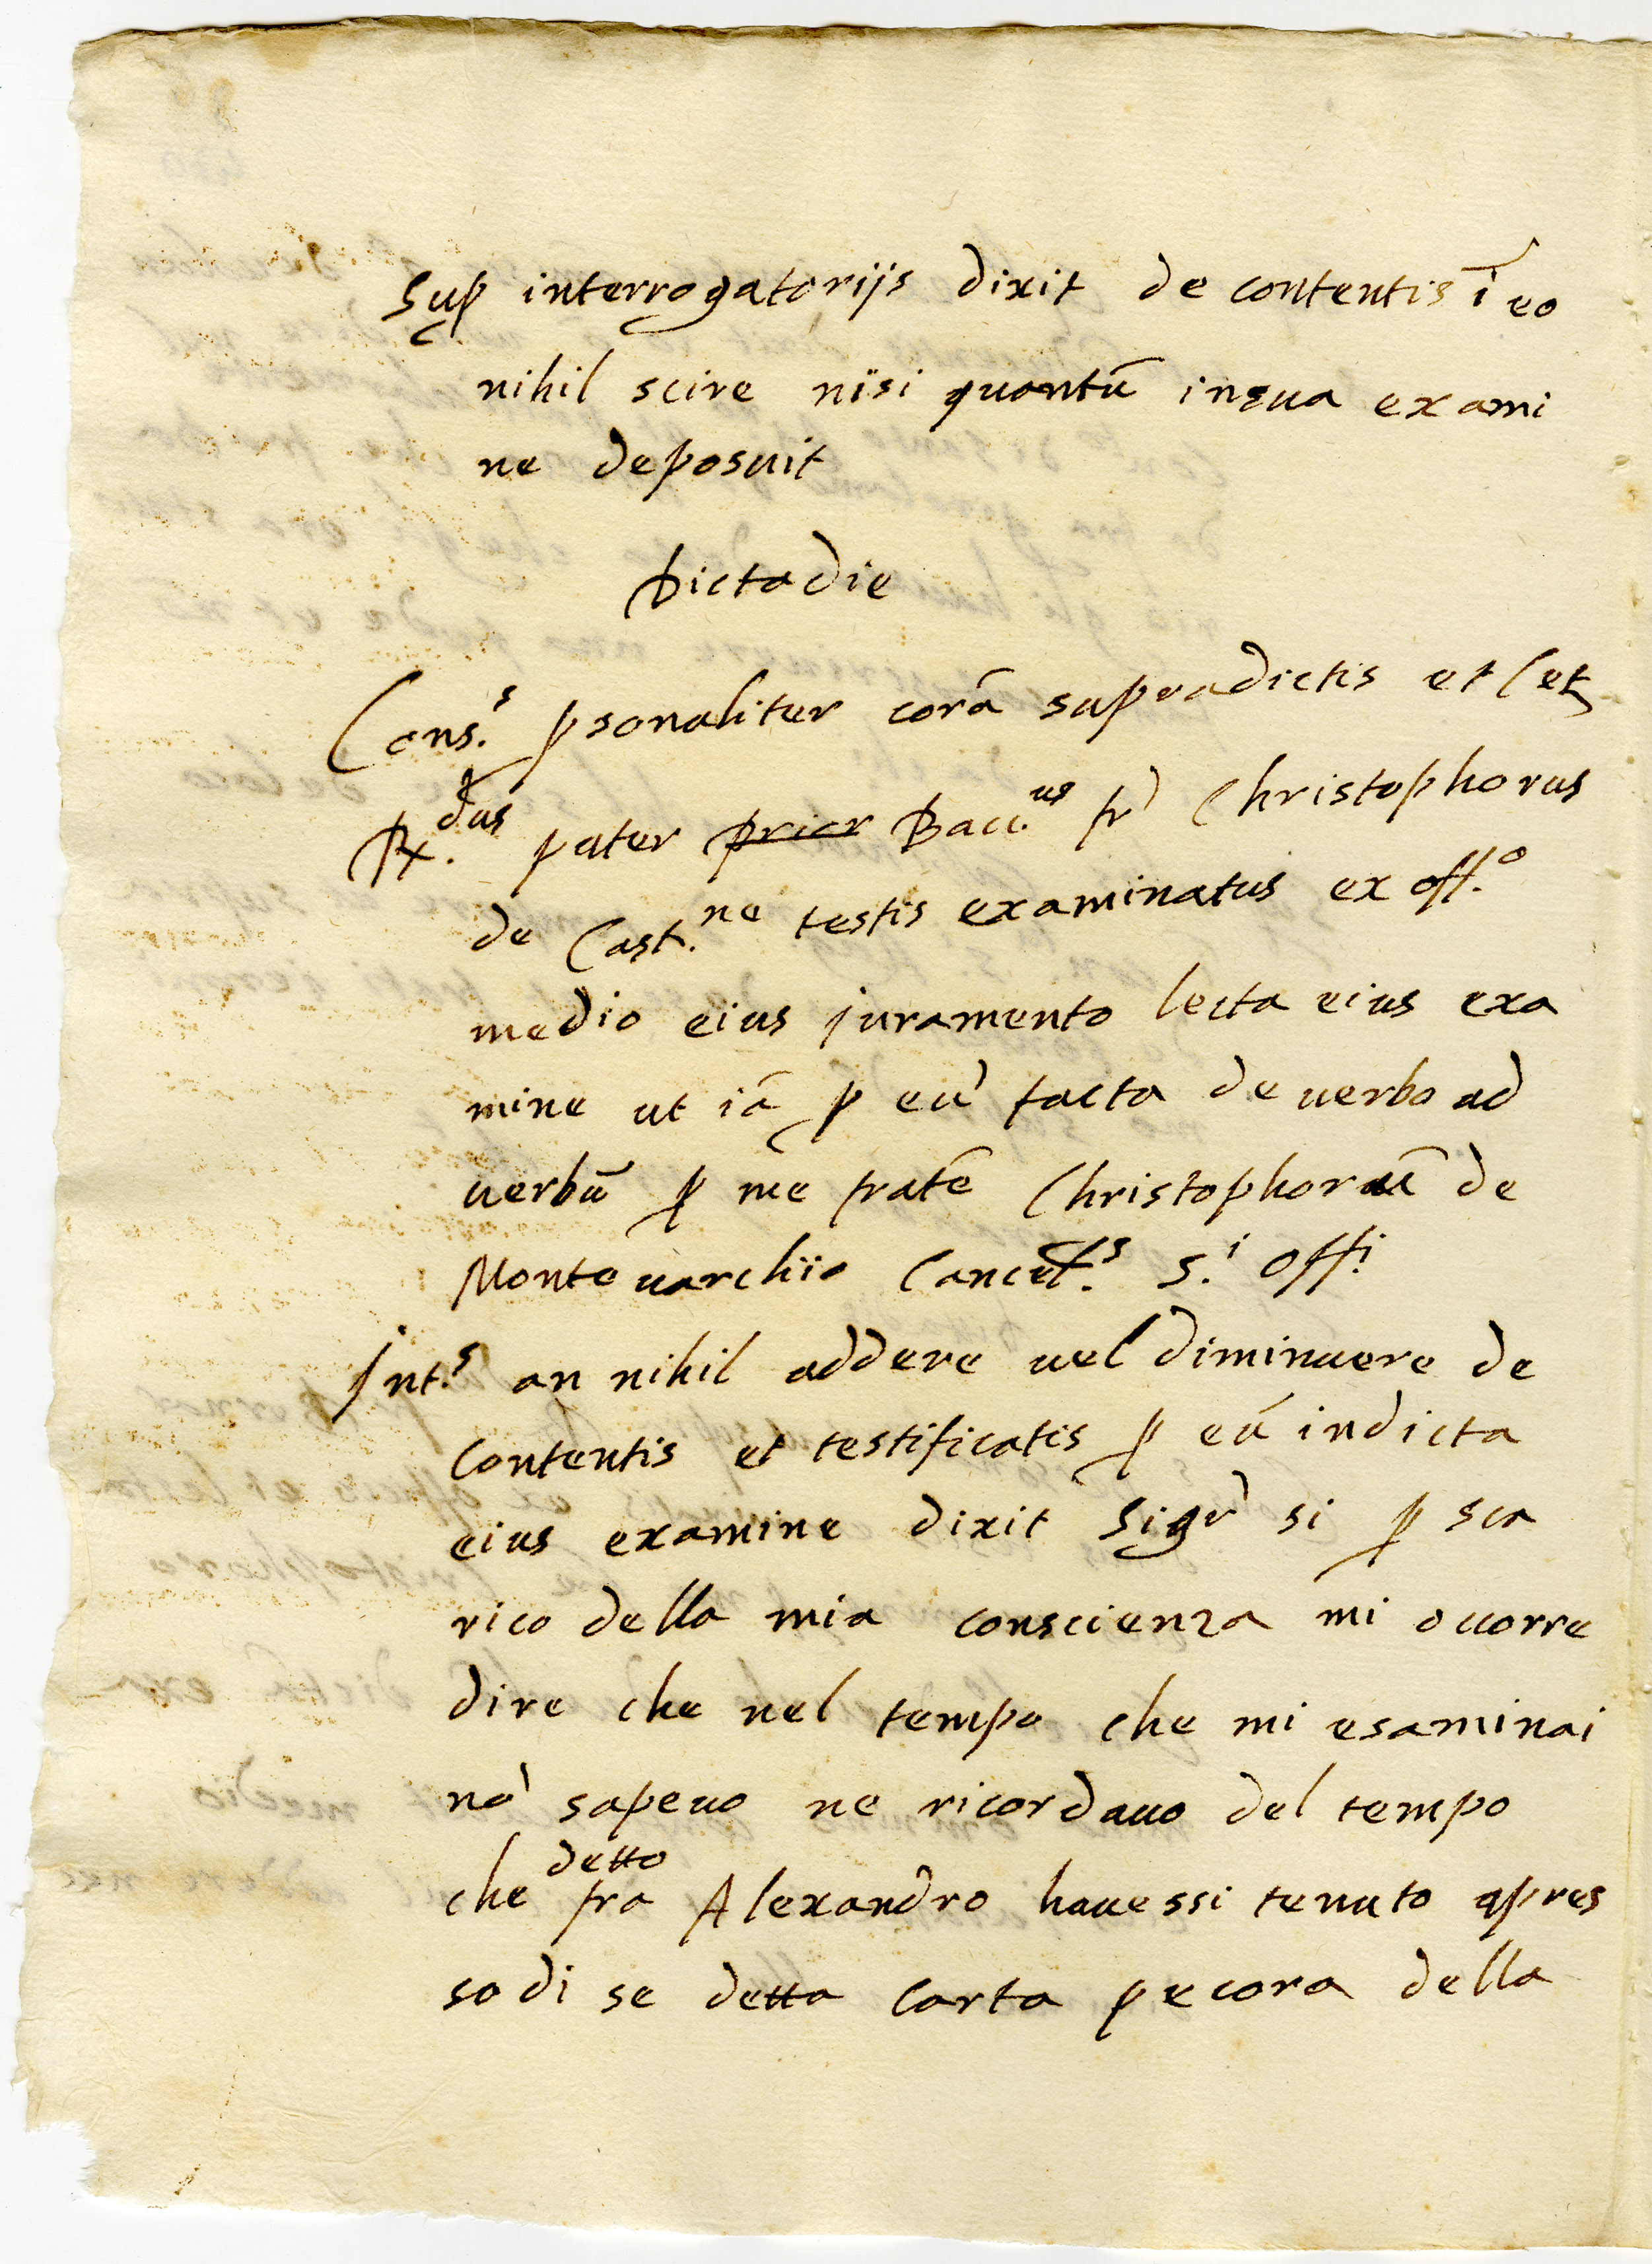 Sup interrogatorijs dixit de contentis ī eo
nihil scire nisi quantū in sua exami
ne deposuit
Dicta die
Cons.s psonaliter corā supradictis et Cet
R.dus pater prior Bacc.us fr Christophorus
de Cast.ne testis examinatus ex off.o
medio eius juramento lecta eius exa
mine ut iā p eū facta de uerbo ad
uerbū p me fratē Christophorū de
Monte uarchio Cancell.s S.i Off.i
Int.s an nihil addere uel diminuere de
contentis et testificatis p eū in dicta
eius examine dixit Sigr si p sca
rico della mia conscienza mi occorre
dire che nel tempo che mi esaminai
nō sapeuo ne ricordauo del tempo
che detto fra Alexandro hauessi tenuto apres
so di se detta carta pecora della